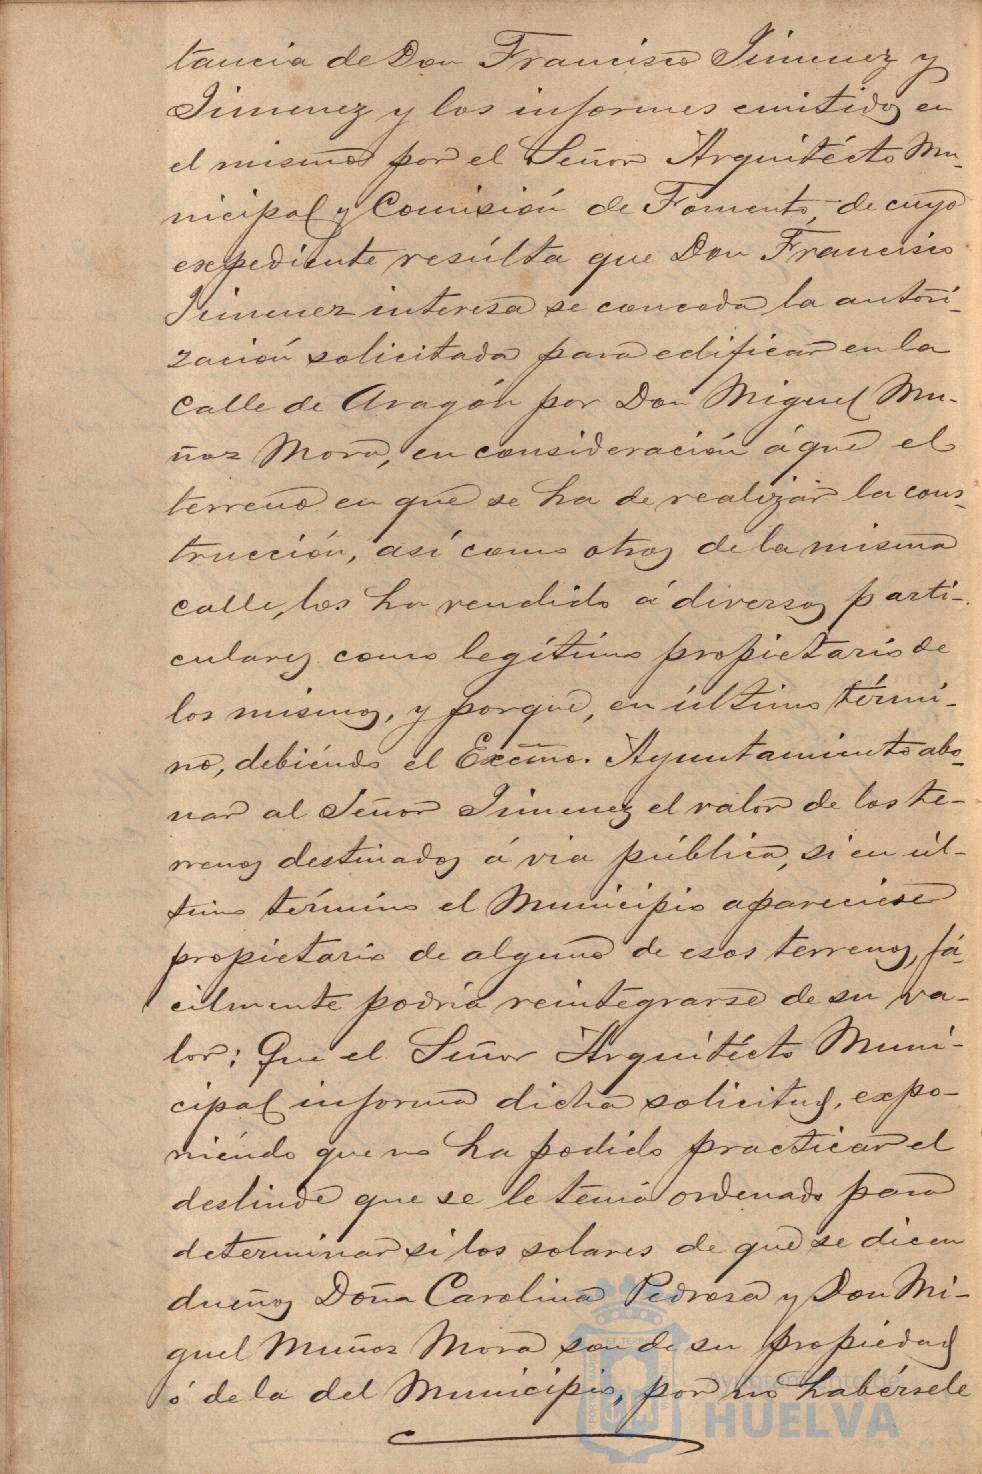 tancia de Don Francisco Jimenez y
Jimenez y los informes emitidos en
el mismo por el Señor Arquitécto Mu-
nicipal y Comisión de Fomento, de cuyo
expediente resúlta que Don Francisco
Jimenez interesa se conceda la autori-
zación solicitada para edificar en la
calle de Aragón por Don Miguel Mu-
ñoz Mora, en consideración á que el
terreno en que se ha de realizar la cons-
trucción, así como otros de la misma
calle, los ha vendido á diversos parti-
culares como legítimo propietario de
los mismos, y porque, en último térmi-
no, debiéndo el Excmo. Ayuntamiento abo-
nar al Señor Jimenez el valor de los te-
rrenos destinados á via pública, si en úl-
timo término el Municipio apareciese
propietario de alguno de esos terrenos, fá-
cilmente podría reintegrarse de su va-
lor; Que el Señor Arquitécto Muni-
cipal informa dicha solicitud, expo-
niéndo que no ha podido practicar el
deslinde que se le tenía ordenado para
determinar si los solares de que se dicen
dueños Doña Carolina Pedrosa y Don Mi-
guel Muñoz Mora son de su propiedad
ó de la del Municipio, por no habérsele
Ayuntamiento de
HUELVA